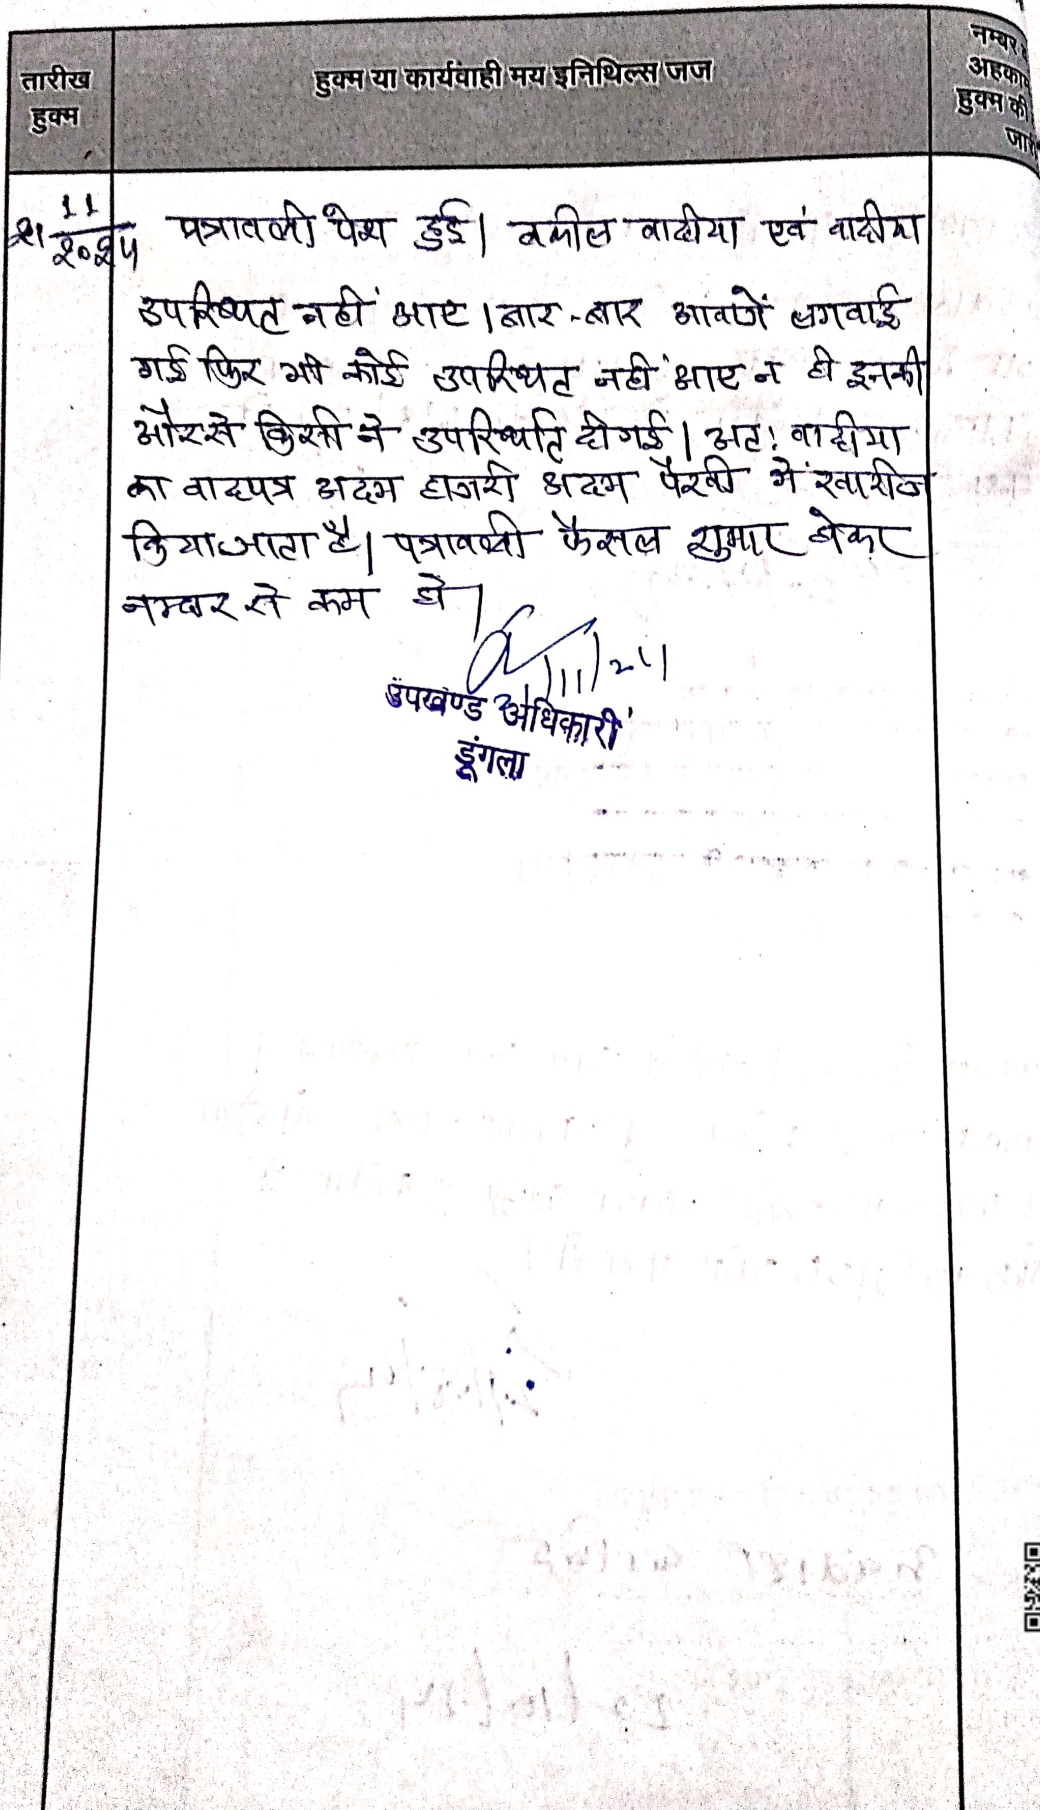 तारीख
हुक्म
हुक्म या कार्यवाही मय इनिथिल्स जज
नम्बर
अहकाम
हुक्म की
जारी
21 11
2024
पत्रावली पेश हुई। वकील वादीया एवं वादीया
उपस्थित नहीं आए। बार-बार आवाजें लगवाई
गई फिर भी कोई उपस्थित नहीं आए न ही इनकी
और से किसी ने उपस्थिति दी गई। अतः वादीया
का वादपत्र अदम हाजरी अदम पैरवी में खारीज
किया जाता है। पत्रावली फैसल शुमार होकर
नम्बर से कम हो।
21/11/24
उपखण्ड अधिकारी
डूंगला